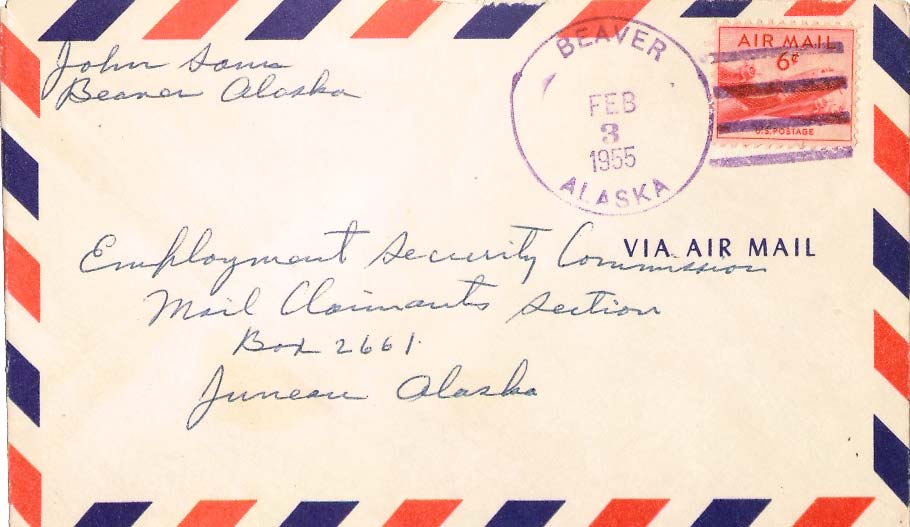 John Sams
Beaver Alaska
BEAVER
FEB
3
1955
ALASKA
AIR MAIL
6¢
U.S. POSTAGE
VIA AIR MAIL
Employment Security Commission
Mail Claimants Section
Box 2661
Juneau Alaska